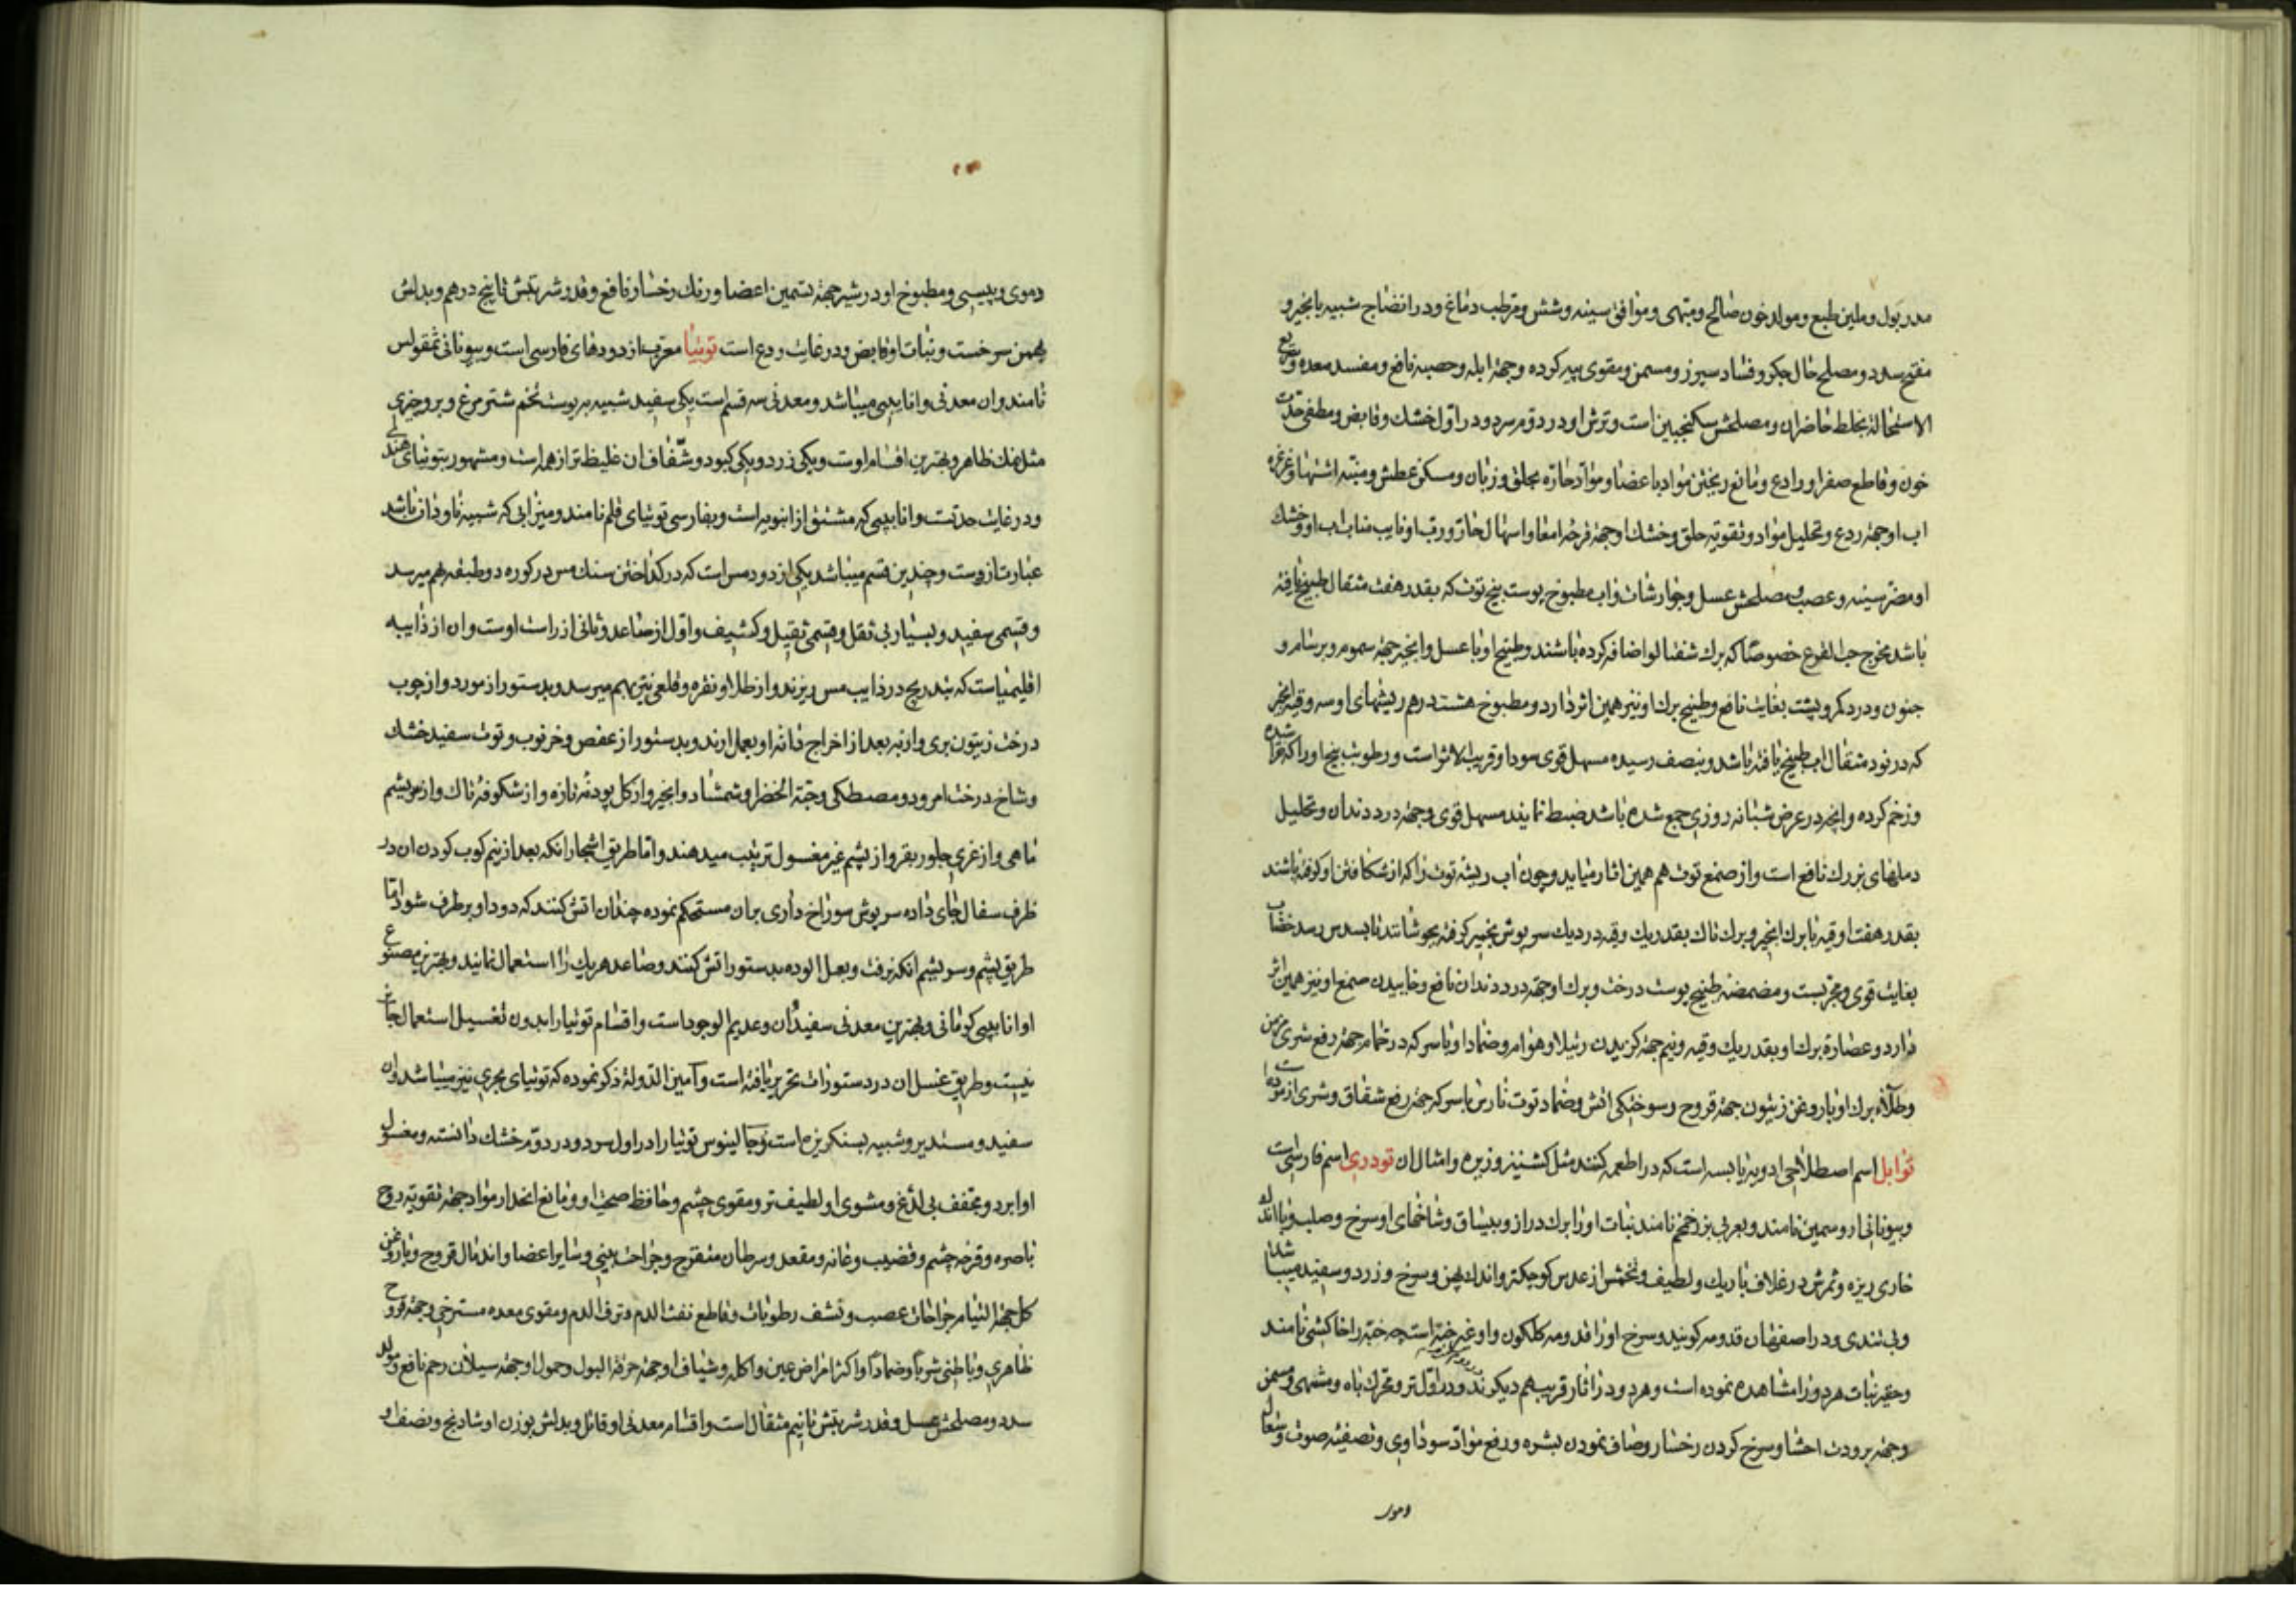 مدر بول و ملین طبع و مولد خون صالح و مبهی و موافق سینه و شش و مرطب دماغ و در انضاج شبیه بانجیر و
مفتح سدد و مصلح حال جکر و فساد سپرز و مسمن و مقوی پیه کرده و جهة ابله و حصبه نافع و مفسد معده و سریع
الاستحالة بخلط حاضر ان و مصلحش سکنجبین است و ترش او در دوم سرد و در اول خشک و قابض و مطفی حدّت
خون و قاطع صفرا و رادع و مانع ریختن مواد باعضا و موادّ حارّه بحلق و زبان و مسکن عطش و منبّه اشتها و غرغره
اب او جهة ردع و تحلیل مواد و تقویة حلق و خشک او جهة قرحه امعا و اسهال حار و رب او نایب مناب اب او و خشک
او مضر سینه و عصب و مصلحش عسل و جوارشات و اب مطبوخ پوست بیخ توت که بقدر هفت مثقال طبیخ یافته
باشد مخرج حب القرع خصوصًا که برک شفتالو اضافه کرده باشند و طبیخ او با عسل و انجیر جهة سموم و برسام و
جنون و درد کمر و پشت بغایت نافع و طبیخ برک او نیز همین اثر دارد و مطبوخ هشت درهم ریشهای او سه وقیه انجیر
که در نود مثقال اب طبیخ یافته باشد و بنصف رسیده مسهل قوی سودا و قریب الاثر است و رطوبت بیخ او را که شده
و زخم کرده و انچه در عرض شبانه روزی جمع شده باشد ضبط نمایند مسهل قوی و جهة درد دندان و تحلیل
دملهای بزرک نافع است و از صمغ توت هم همین اثار میاید و چون اب ریشه توت را که از شکافتن او کوفته باشند
بقدر هفت اوقیه با برک انجیر و برک تاک بقدر یک وقیه در دیک سرپوش بخمیر کرفته بجوشانند تا بسدس رسد خضاب
بغایت قوی و مجرّبست و مضمضه طبیخ پوست درخت و برک او جهة درد دندان نافع و خاییدن صمغ او نیز همین اثر
دارد و عصارة برک او بقدر یک وقیه و نیم جهة کزیدن رتیلا و هوام و ضماد او با سرکه در حمام جهة دفع شری مزمن
و طلاء برک او با روغن زیتون جهة قروح و سوختکی اتش و ضماد توت نارس با سرکه جهة رفع شقاق و شری ازموده است
توابل اسم اصطلاحی ادویه یابسه است که در اطعمه کنند مثل کشنیز و زیره و امثال ان تودری اسم فارسی است
و بیونانی اروسمین نامند و بعربی بزر خمخم نامند نبات او را برک دراز و بیساق و شاخهای او سرخ و صلب و با اندک
خاری ریزه و ثمرش در غلاف باریک و لطیف و تخمش از عدس کوچکتر و اندک پهن و سرخ و زرد و سفید میباشد
و بی تندی و در اصفهان قدومه کویند و سرخ او را قدومه کلکون و او غیر خبّه است چه خبّه را خاکشی نامند
و حقیر نبات هر دو را مشاهده نموده است و هر دو در اثار قریب بهم دیکرند و در اوّل تر و محرّک باه و مشتهی و مسمن
و جهة برودت احشا و سرخ کردن رخسار و صاف نمودن بشره و رفع موادّ سوداوی و تصفیه صوت و سعال
دموی و پیسی و مطبوخ او در شیر جهة تسمین اعضا و رنک رخسار نافع و قدر شربتش تا پنج درهم و بدلش
بهمن سرخست و نبات او قابض و در غایت ردع است توتیا معرّب از دودهای فارسی است و بیونانی تمقولس
نامند و ان معدنی و انابیبی میباشد و معدنی سه قسم است یکی سفید شبیه بپوست تخم شترمرغ و برو چیزی
مثل نمک ظاهر و بهترین اقسام اوست و یکی زرد و یکی کبود و شفّاف ان غلیظ تر از همه است و مشهور بتوتیای هندی
و در غایت حدتست و انابیبی که مشتق از انبوبه است و بفارسی توتیای قلم نامند و میزابی که شبیه ناودان باشد
عبارت ازوست و چندین قسم میباشد یکی از دود مس است که در کداختن سنک مس در کوره دو طبقه بهم میرسد
و قسمی سفید و بسیار بی ثقل و قسمی ثقیل و کثیف و اوّل از صاعد و ثانی از راسب اوست و ان از ذایبه
اقلیمیاست که بتدریج در ذایب مس ریزند و از طلا و نقره و قلعی نیز بهم میرسد و بدستور از مورد و از چوب
درخت زیتون بری و از به بعد از اخراج دانه او بعمل ارند و بدستور از عفص و خرنوب و توت سفید خشک
و شاخ درخت امرود و مصطکی و حبّة الخضرا و شمشاد و انجیر و از کل پودنه تازه و از شکوفه تاک و از سریشم
ماهی و از غری جلود بقر و از پشم غیر مغسول ترتیب میدهند و اما طریق اشجار انکه بعد از نیم کوب کردن ان در
ظرف سفال جای داده سرپوش سوراخ داری بران مستحکم نموده چندان اتش کنند که دود او برطرف شود و امّا
طریق پشم و سریشم انکه بزفت و بعسل الوده بدستور اتش کنند و صاعد هر یک را استعمال نمایند و بهترین مصنوع
او انابیبی کرمانی و بهترین معدنی سفید ان و عدیم الوجود است و اقسام توتیا را بدون تغسیل استعمال جایز
نیست و طریق غسل ان در دستورات تحریر یافته است و امین الدّوله ذکر نموده که توتیای بحری نیز میباشد و ان
سفید و مستدیر و شبیه بسنکریزه است و جالینوس توتیا را در اول سرد و در دوّم خشک دانسته و مغسول
او ابرد و مجفف بی لذع و مشوی او لطیف تر و مقوی چشم و حافظ صحت او و مانع انحدار مواد جهة تقویة روح
باصره و قرحه چشم و قضیب و عانه و مقعد و سرطان متقرح و جراحت بینی و سایر اعضا و اندمال قروح و با روغن
کل جهة التیام جراحات عصب و نشف رطوبات و قاطع نفث الدم و نزف الدم و مقوی معده مسترخی و جهة قروح
ظاهری و باطنی شربًا و ضمادًا و اکثر امراض عین و اکله و شیاف او جهة حرقة البول و حمول او جهة سیلان رحم نافع و مولد
سدد و مصلحش عسل و قدر شربتش تا نیم مثقال است و اقسام معدنی او قاتل و بدلش بوزن او شادنج و نصف او